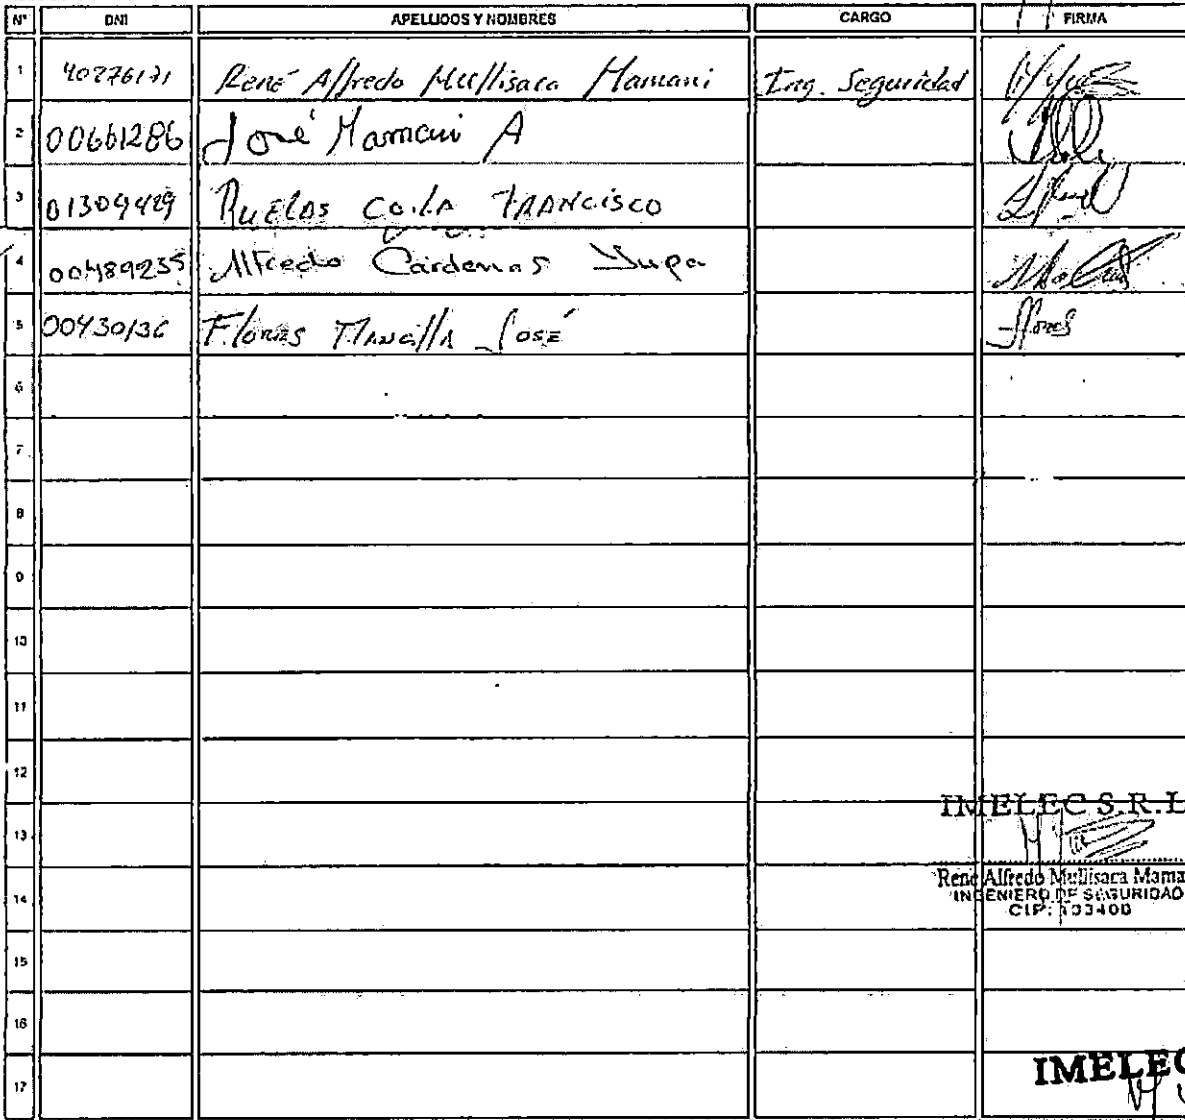 N° DNI APELLIDOS Y NOMBRES CARGO FIRMA
1 40276171 René Alfredo Mullisaca Mamani Ing. Seguridad
2 00661286 José Mamani A
3 01309429 Ruelas Coila Francisco
4 00489235 Alfredo Cárdenas Yupa
5 00430136 Flores Mancilla José Flores
6
7
8
9
10
11
12
IMELEC S.R.L
13
René Alfredo Mullisaca Mama
14 INGENIERO DE SEGURIDAD
CIP: 103400
15
16
IMELEC
17